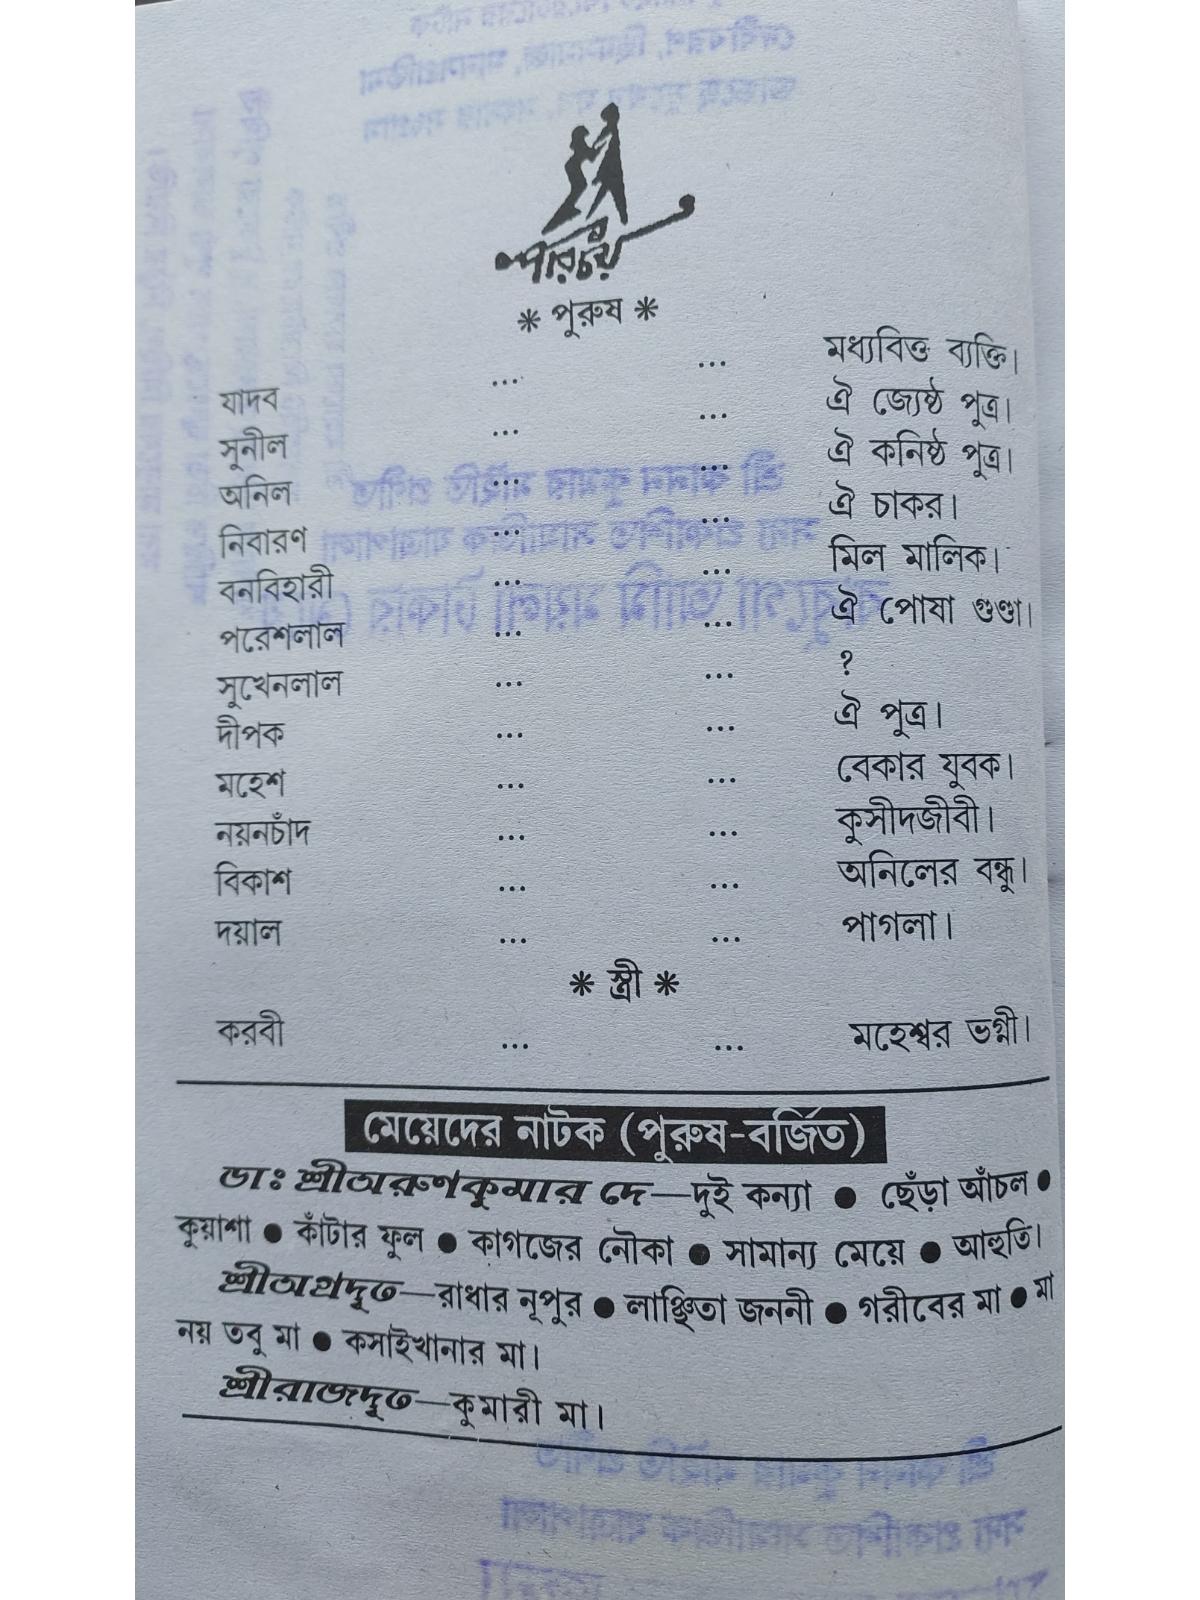 পরিচয়
* পুরুষ *
যাদব ... ... মধ্যবিত্ত ব্যক্তি।
সুনীল ... ... ঐ জ্যেষ্ঠ পুত্র।
অনিল ... ... ঐ কনিষ্ঠ পুত্র।
নিবারণ ... ... ঐ চাকর।
বনবিহারী ... ... মিল মালিক।
পরেশলাল ... ... ঐ পোষা গুণ্ডা।
সুখেনলাল ... ... ?
দীপক ... ... ঐ পুত্র।
মহেশ ... ... বেকার যুবক।
নয়নচাঁদ ... ... কুসীদজীবী।
বিকাশ ... ... অনিলের বন্ধু।
দয়াল ... ... পাগলা।
* স্ত্রী *
করবী ... ... মহেশ্বর ভগ্নী।
মেয়েদের নাটক (পুরুষ-বর্জিত)
ডাঃ শ্রীঅরুণকুমার দে—দুই কন্যা ● ছেঁড়া আঁচল ●
কুয়াশা ● কাঁটার ফুল ● কাগজের নৌকা ● সামান্য মেয়ে ● আহুতি।
শ্রীঅগ্রদূত—রাধার নূপুর ● লাঞ্ছিতা জননী ● গরীবের মা ● মা
নয় তবু মা ● কসাইখানার মা।
শ্রীরাজদূত—কুমারী মা।